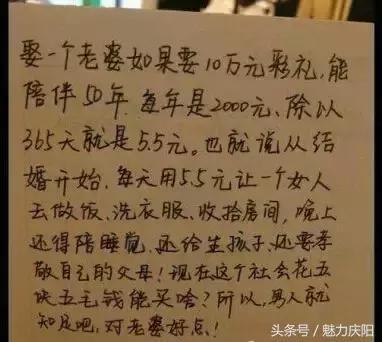 娶一个老婆如果要10万元彩礼,能
陪伴50年 每年是2000元、除以
365天就是5.5元。也就说从结
婚开始,每天用5.5元让一个女人
去做饭、洗衣服、收拾房间,晚上
还得陪睡觉,还给生孩子,还要孝
敬自己的父母!现在这个社会花五
快五毛钱能买啥?所以,男人就
知足吧,对老婆好点!
头条号 / 魅力庆阳